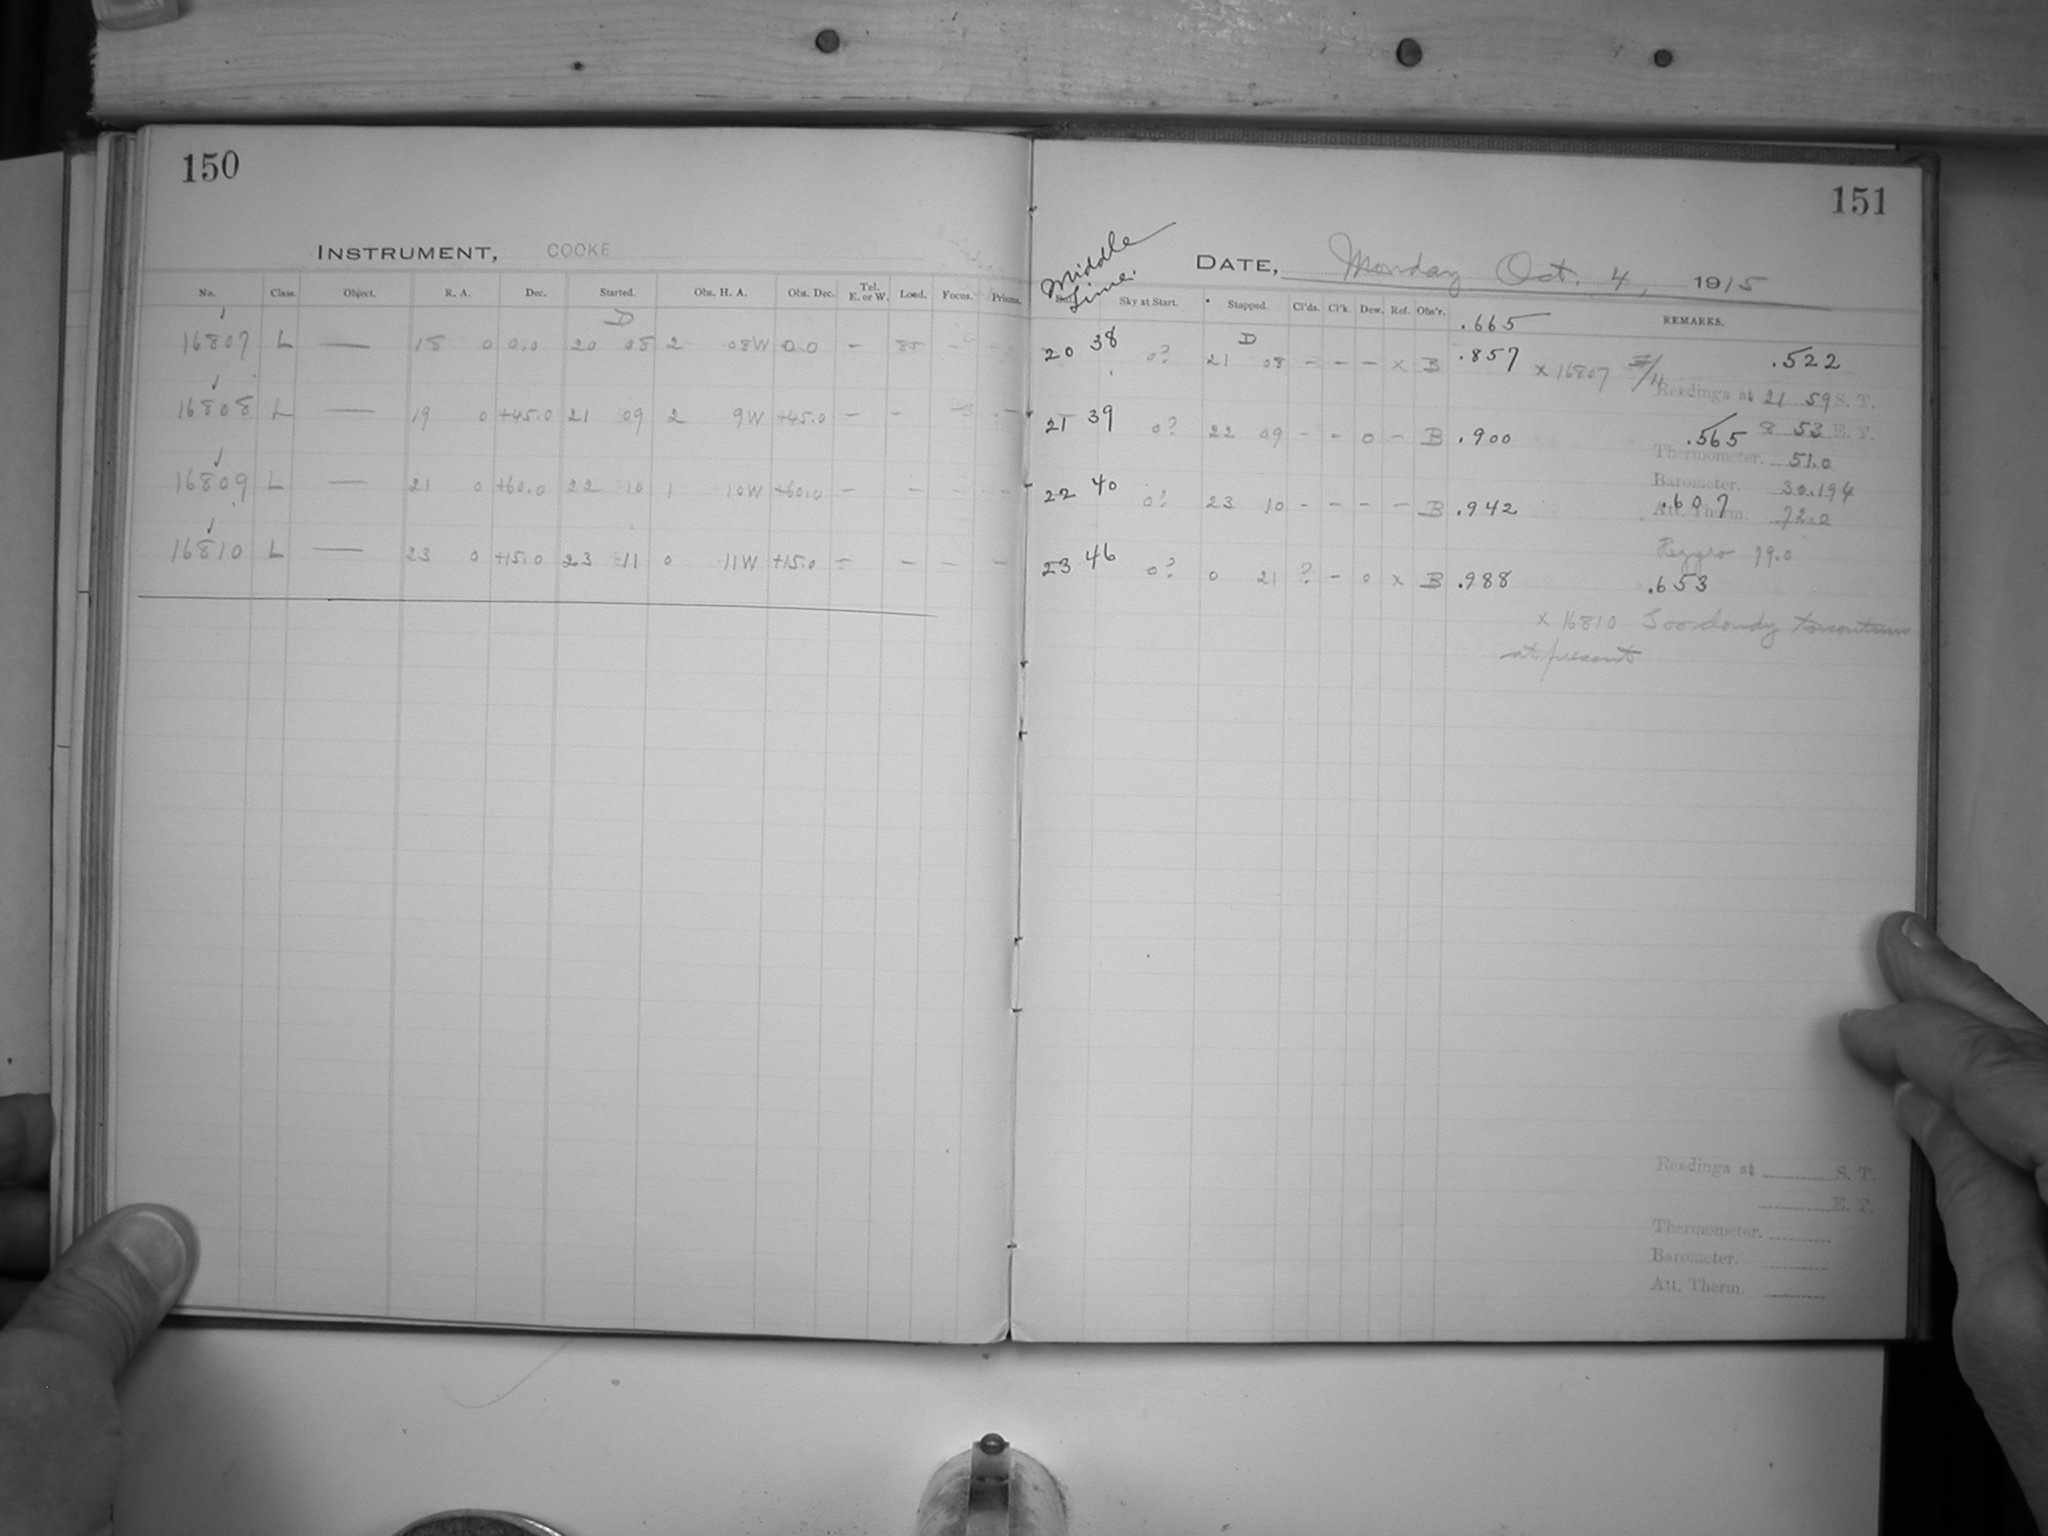 150
INSTRUMENT, COOKE
No. Class. Object. R. A. Dec. Started. Obs. H. A. Obs. Dec. Tel. E. or W. Load. Focus. Prisms.
D
16807 L — 18 0 0.0 20 08 2 08W 0.0 – 85 –
16808 L — 19 0 +45.0 21 09 2 9W +45.0 – – – –
16809 L — 21 0 +60.0 22 10 1 10W +60.0 – – – –
16810 L — 23 0 +15.0 23 11 0 11W +15.0 – – – –
151
Middle Time.
DATE, Monday Oct. 4, 1915
Sky at Start. Stopped. Cl'ds. Cl'k. Dew. Ref. Obs'r. REMARKS.
.665
D
20 38 0? 21 08 – – – x B .857 x 16807 .522
Readings at 21 59 S. T.
8 53 E. T.
21 39 0? 22 09 – – 0 – B .900 .565
Thermometer. 51.0
Barometer. 30.194
22 40 0? 23 10 – – – – B .942 .607
Att. Therm. 72.0
Hygro 79.0
23 46 0? 0 21 ? – 0 x B .988 .653
x 16810 Too cloudy to continue
at present
Readings at S. T.
E. T.
Thermometer.
Barometer.
Att. Therm.